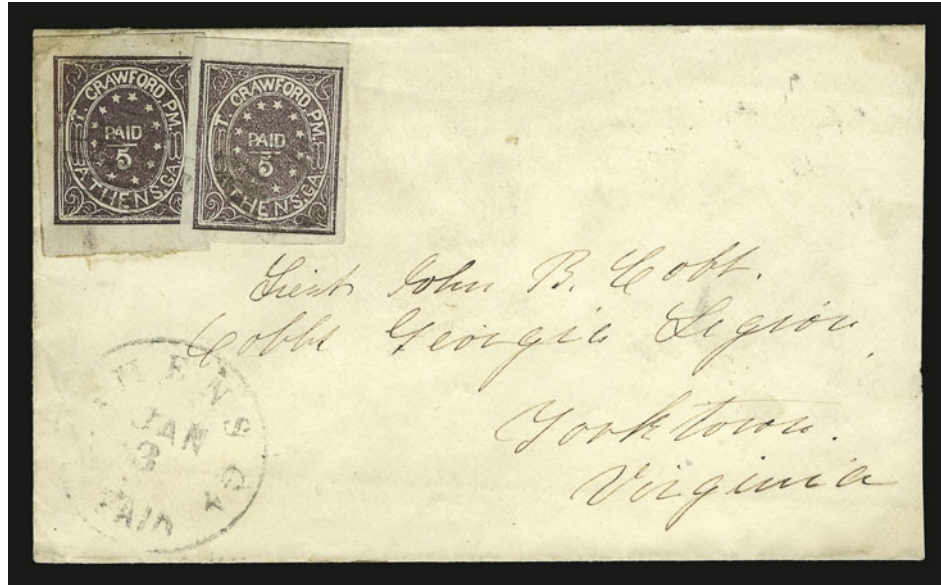 T. CRAWFORD. P.M.
PAID
5
ATHENS, GA.
T. CRAWFORD. P.M.
PAID
5
ATHENS, GA.
Lieut John B. Cobb.
Cobbs Georgia Legion
Yorktown.
Virginia
THENS GA
JAN
3
PAID